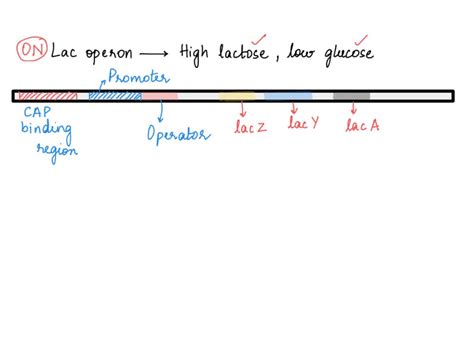 ON Lac operon → High lactose, low glucose
Promoter
CAP
binding
region
Operator
lac Z
lac Y
lac A